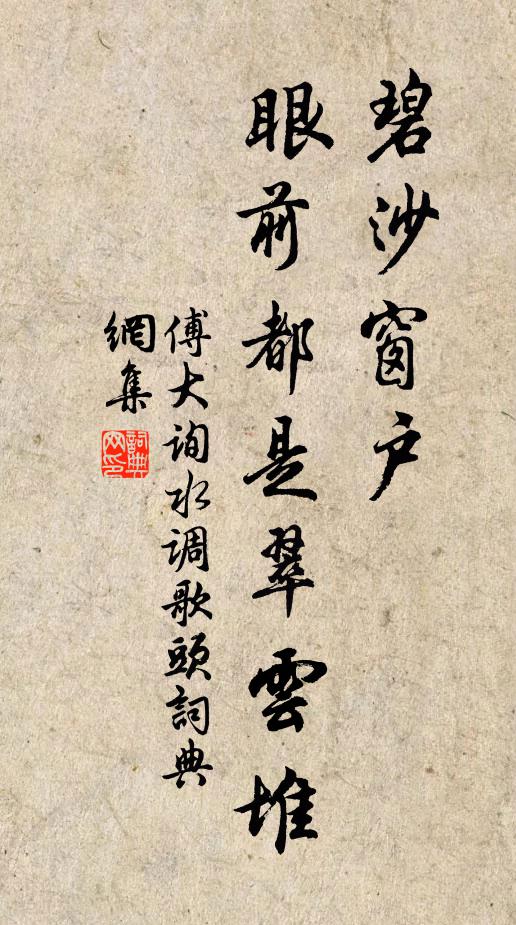 碧沙窗户
眼前都是翠雲堆
傅大询水调歌頭詞典
網集
詞典網印